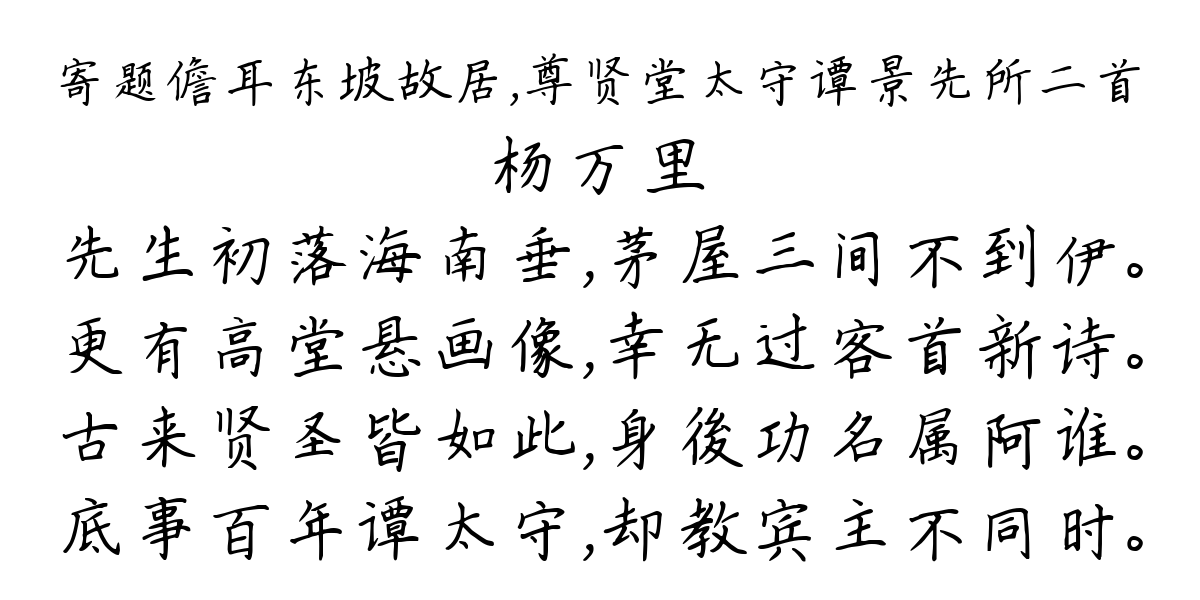 寄题儋耳东坡故居,尊贤堂太守谭景先所二首
杨万里
先生初落海南垂,茅屋三间不到伊。
更有高堂悬画像,幸无过客首新诗。
古来贤圣皆如此,身後功名属阿谁。
底事百年谭太守,却教宾主不同时。